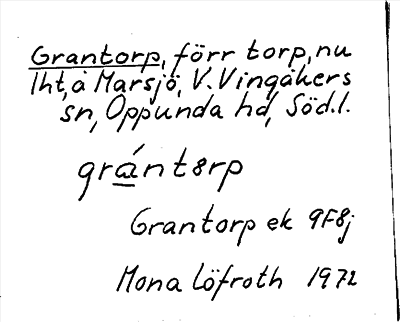 Grantorp, förr torp, nu
lht, å Marsjö, V. Vingåkers
sn, Oppunda hd, Söd.l.
grántɜrp
Grantorp ek 9F8j
Mona Löfroth 1972